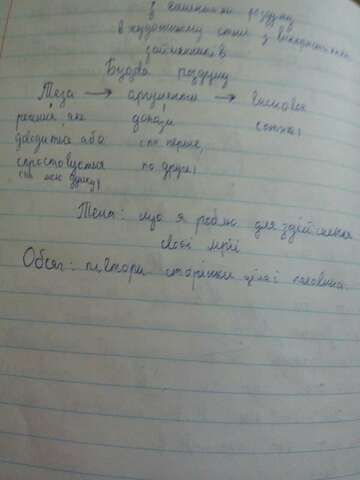 з елементами роздуму
в художньому стилі з використанням
займенників
Будова роздуму
Теза → аргументи → висновок
речення, яке докази
доводиться або (по перше,
спростовується по друге)
(на мою думку)
Тема: що я роблю для здійснення
своєї мрії
Обсяг: півтори сторінки ціла і половина.